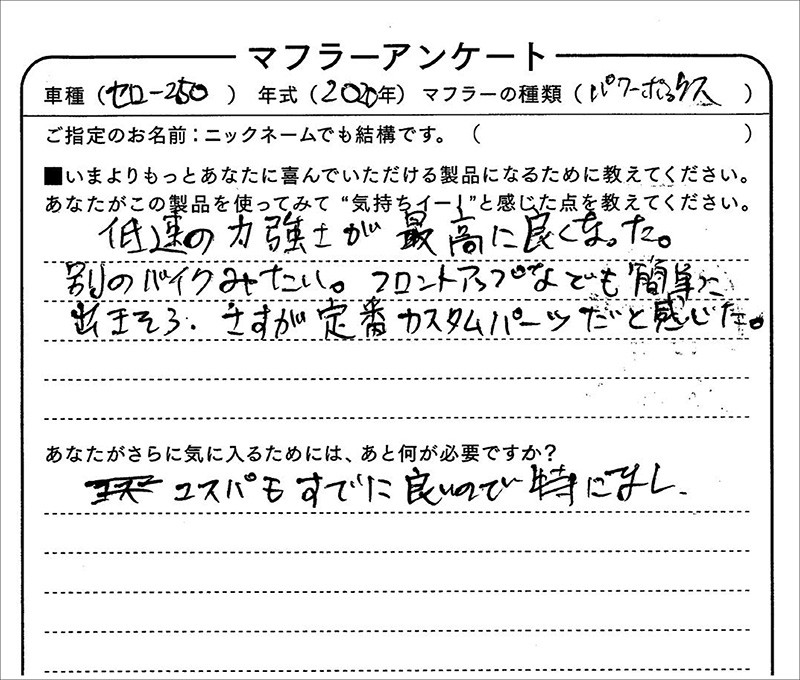 マフラーアンケート
車種(セロー250) 年式(2020年) マフラーの種類(パワーボックス)
ご指定のお名前:ニックネームでも結構です。( )
■いまよりもっとあなたに喜んでいただける製品になるために教えてください。
あなたがこの製品を使ってみて“気持ちイー!”と感じた点を教えてください。
低速の力強さが最高に良くなった。
別のバイクみたい。フロントアップなども簡単に
出きそう.さすが定番カスタムパーツだと感じた。
あなたがさらに気に入るためには、あと何が必要ですか?
コスパもすでに良いので特になし.